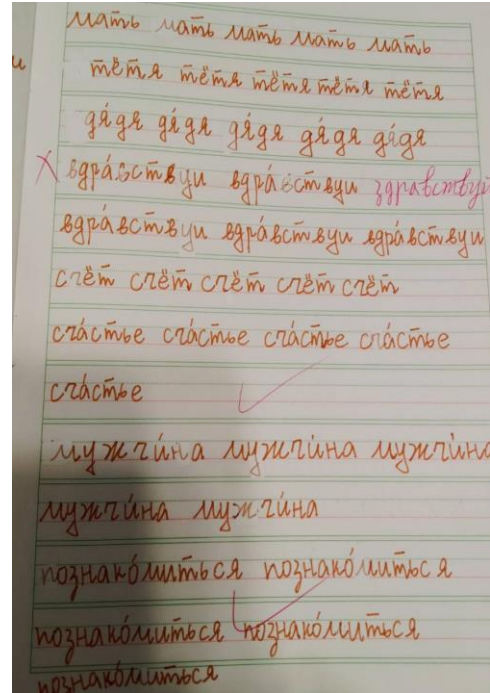 мать мать мать мать мать
тётя тётя тётя тётя тётя
дя́дя дя́дя дя́дя дя́дя дя́дя
вдра́вствуи вдра́вствуи здравствуй
вдра́вствуи вдра́вствуи вдра́вствуи
счёт счёт счёт счёт счёт
сча́стье сча́стье сча́стье сча́стье
сча́стье
мужчи́на мужчи́на мужчи́на
мужчи́на мужчи́на
познако́миться познако́миться
познако́миться познако́миться
познако́миться